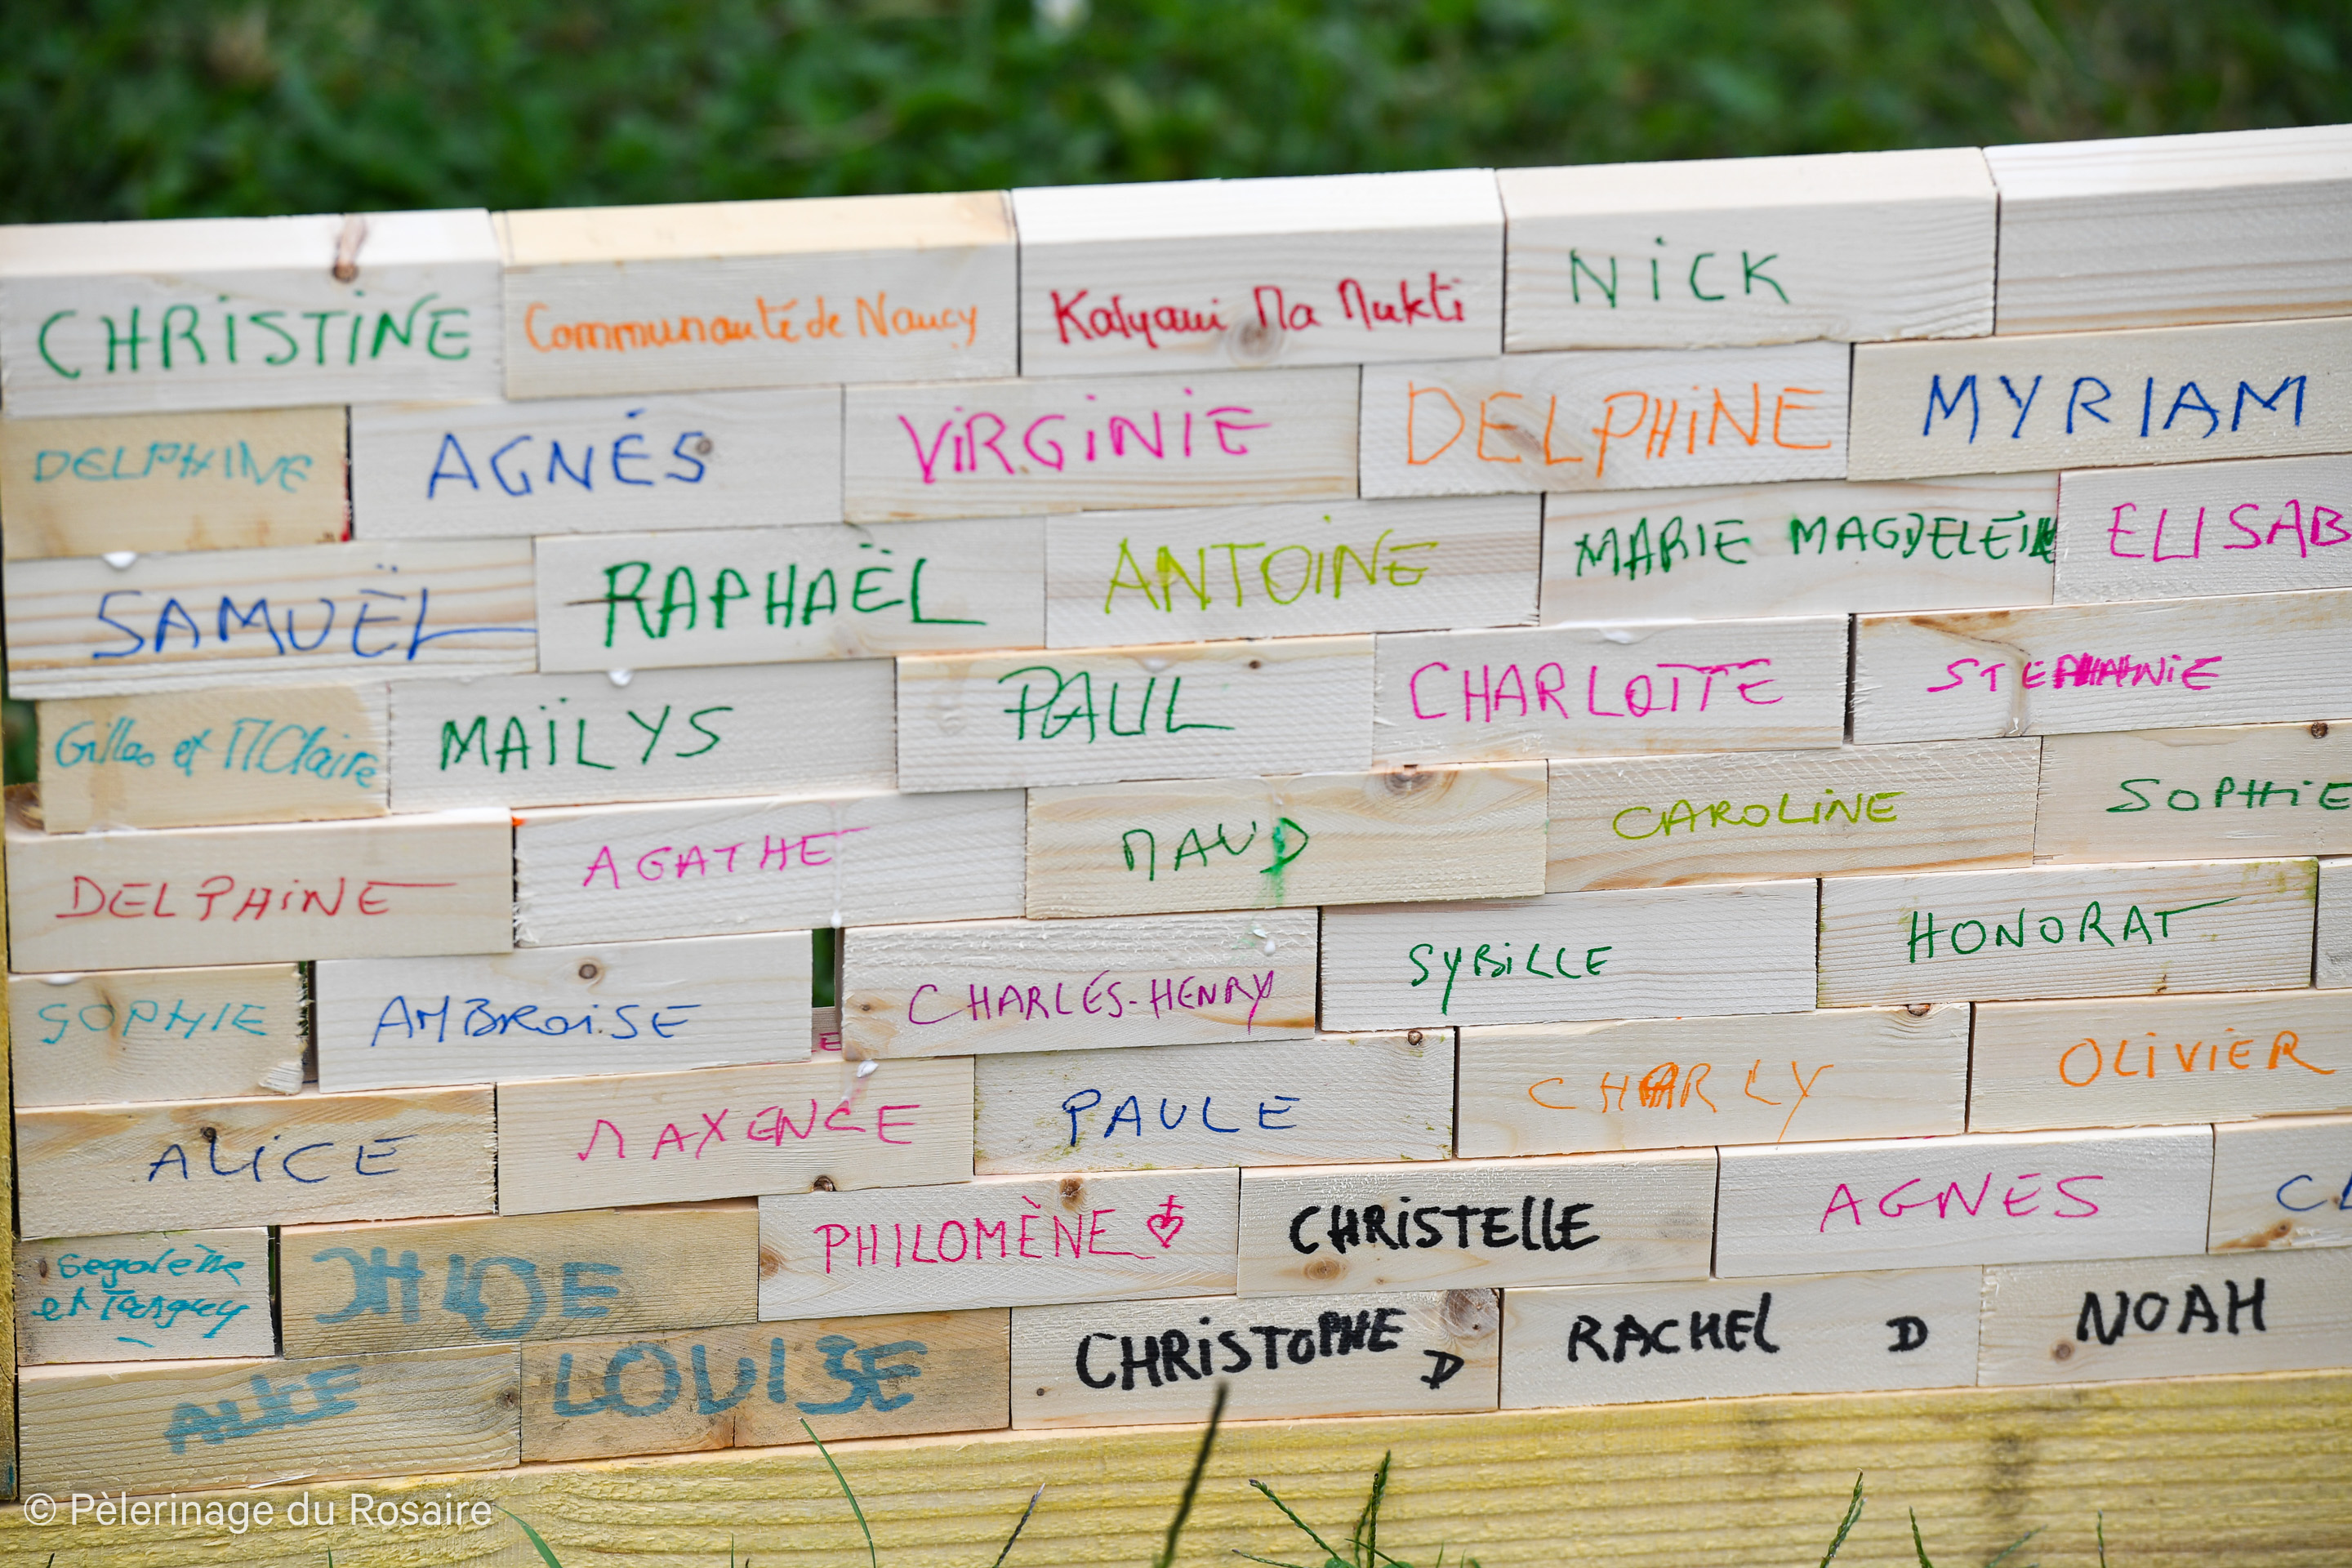 CHRISTINE
Communauté de Nancy
Kalyani Ma Mukti
NICK
DELPHINE
AGNÉS
VIRGINIE
DELPHINE
MYRIAM
SAMUËL
RAPHAËL
ANTOINE
MARIE MAGDELEINE
ELISAB
Gilles et MClaire
MAÏLYS
PAUL
CHARLOTTE
STEPHANIE
DELPHINE
AGATHE
MAUD
CAROLINE
SOPHIE
SOPHIE
AMBROISE
CHARLES-HENRY
SYBILLE
HONORAT
ALICE
MAXENCE
PAULE
CHARLY
OLIVIER
Segolène
et Tanguy
CHLOE
PHILOMÈNE
CHRISTELLE
AGNES
ALICE
LOUISE
CHRISTOPHE D
RACHEL D
NOAH
© Pèlerinage du Rosaire